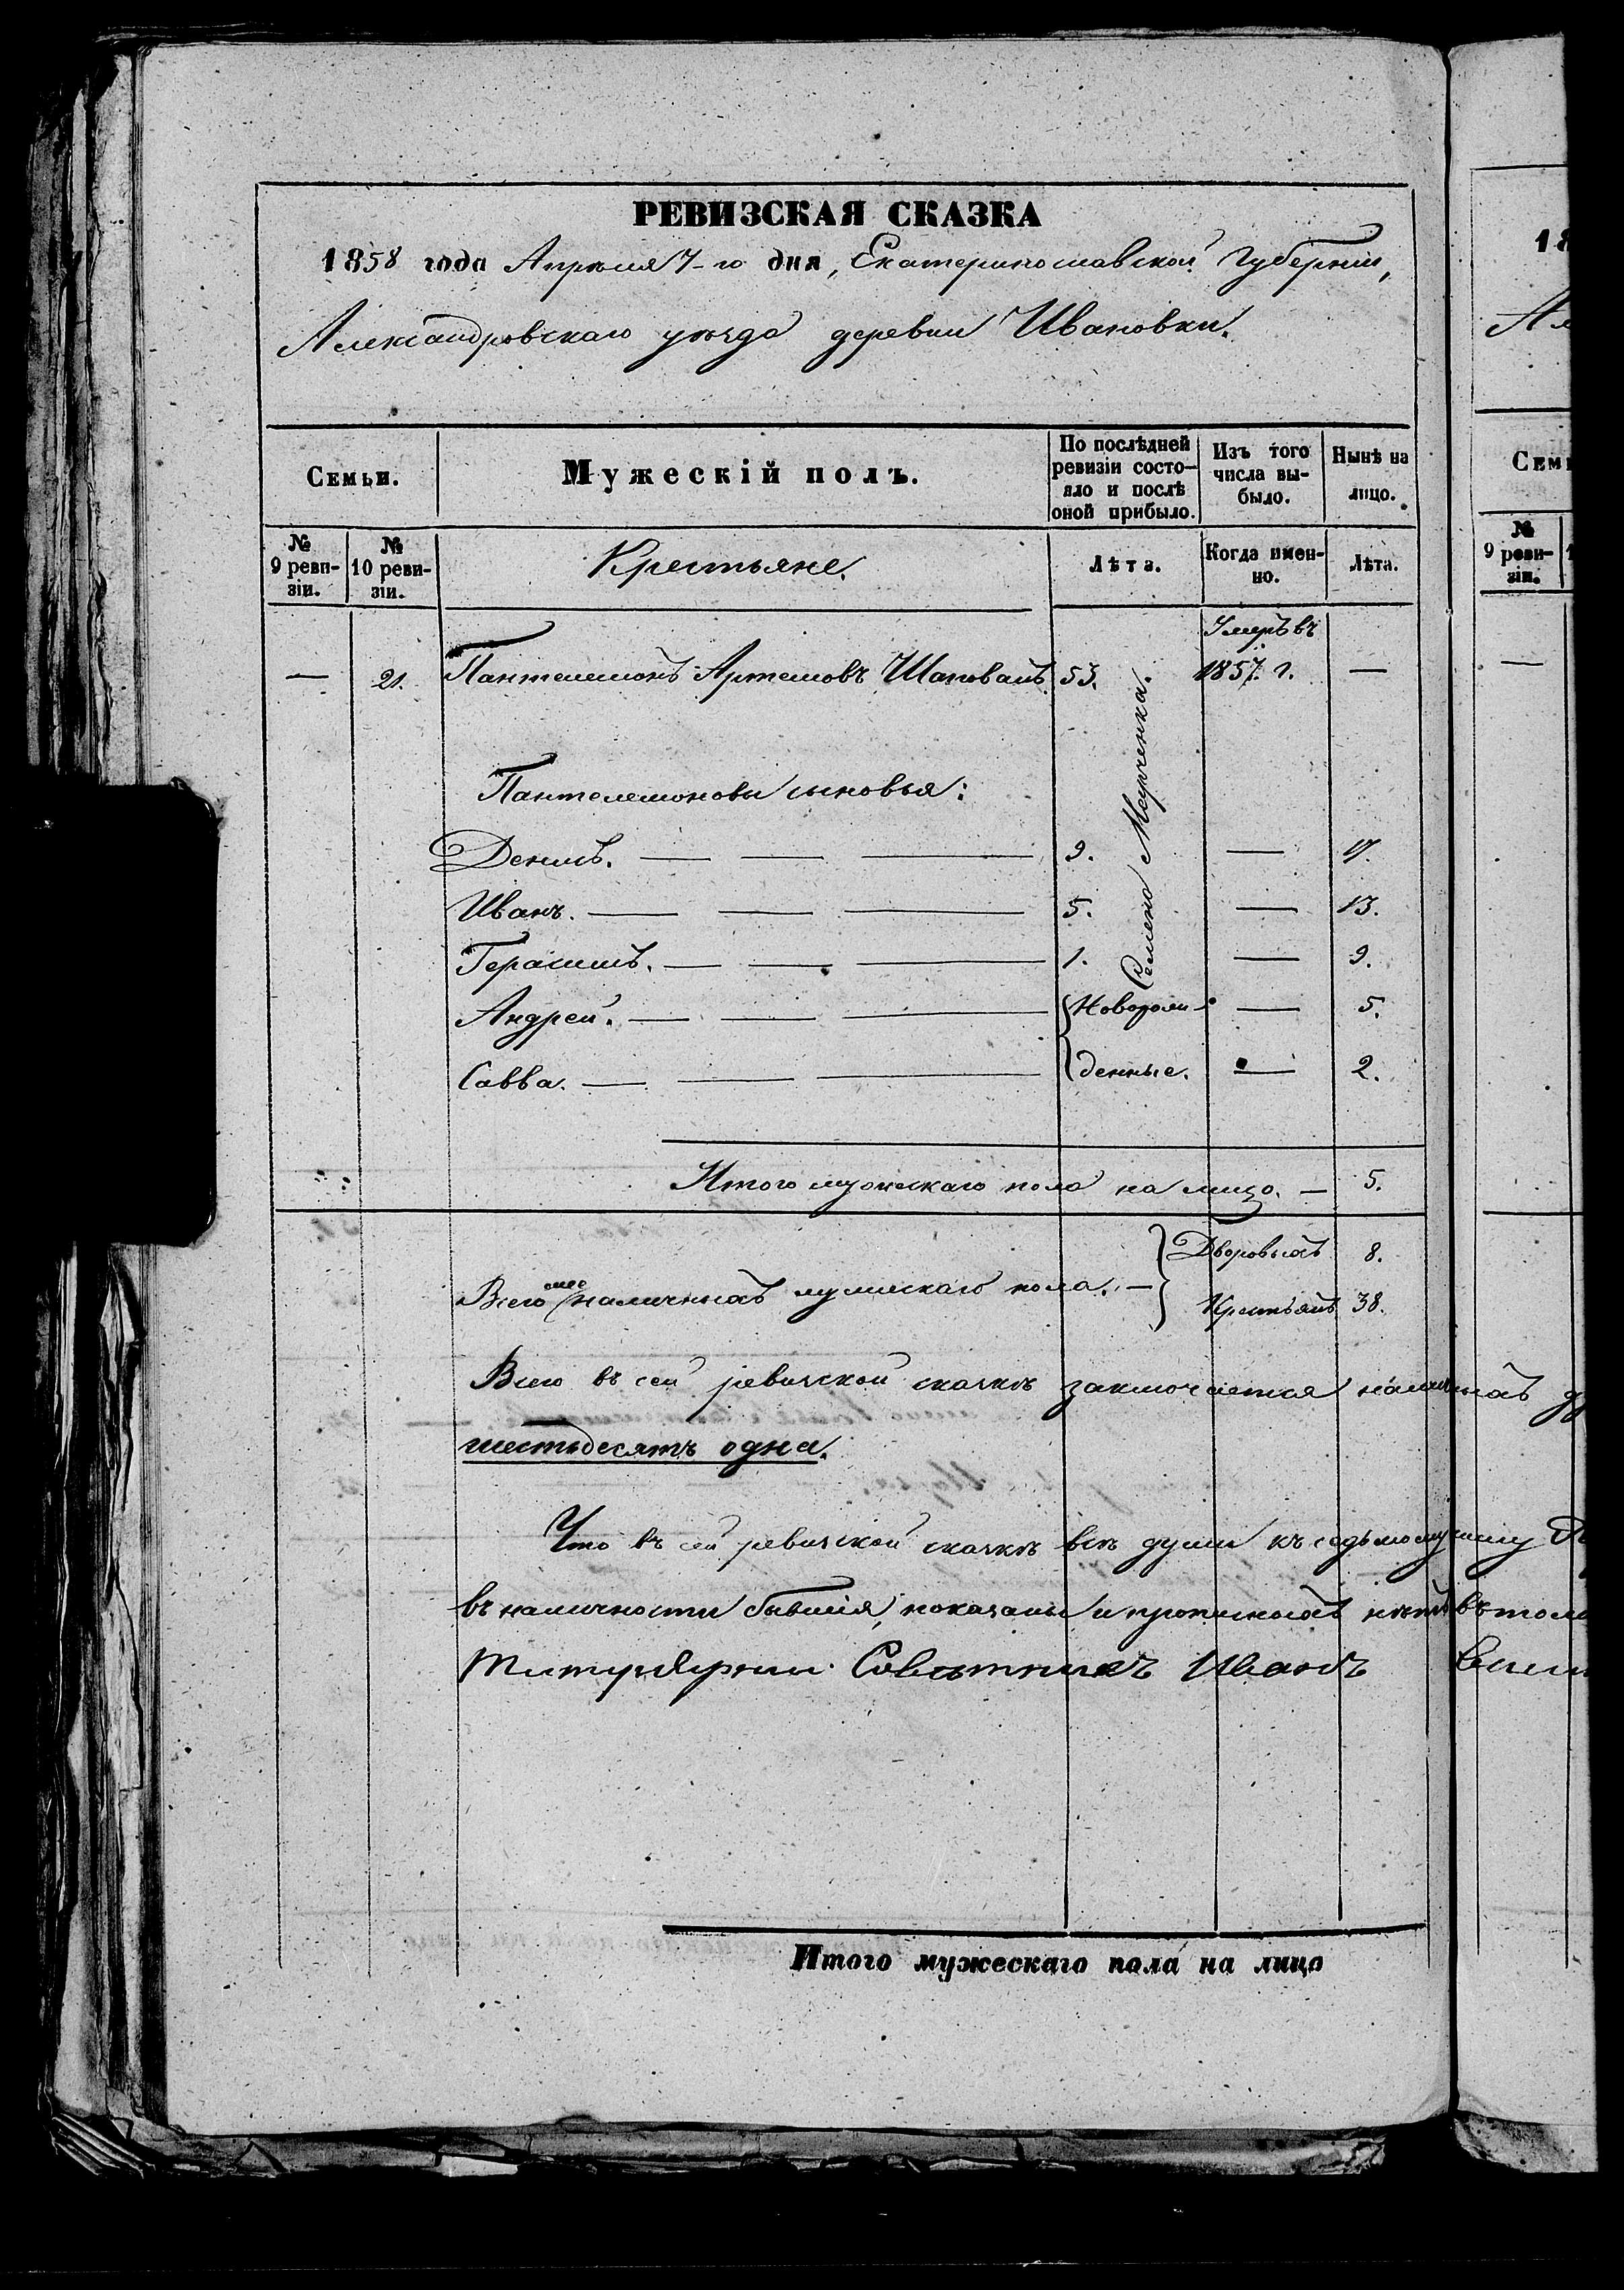 РЕВИЗСКАЯ СКАЗКА
1858 года Апрѣля 7-го дня, Екатеринославской Губерніи,
Александровскаго уѣзда деревни Ивановки.
Семьи.
Мужескій полъ.
По послѣдней ревизіи состо-яло и послѣ оной прибыло.
Изъ того числа вы-было.
Нынѣ на лицо.
№ 9 реви-зіи.
№ 10 реви-зіи.
Крестьяне.
Лѣта.
Когда имен-но.
Лѣта.
Умеръ въ
— 21. Пантелемонъ Артемовъ Шаповалъ 53. 1857. г. —
Пантелемоновы сыновья:
Денисъ. — — — 9. — 17.
Иванъ. — — — 5. — 13.
Герасимъ. — — — 1. — 9.
Андрей. — — — Новорож- — 5.
Савва. — — — денные. — 2.
Семена
Итого мужескаго пола на лицо. — 5.
Дворовыхъ 8.
Всего наличныхъ мужескаго пола. —
Крестьянъ 38.
Всего въ сей ревизской сказкѣ заключается наличныхъ
шестьдесятъ одна.
Что въ сей ревизской сказкѣ всѣ души къ седьмому числу
въ наличности бывшія, показаны и прописныхъ нѣтъ въ томъ
Титулярный Совѣтникъ Иванъ
Итого мужескаго пола на лицо
18
Ал
Семь
№ 9 реви-зіи.
—